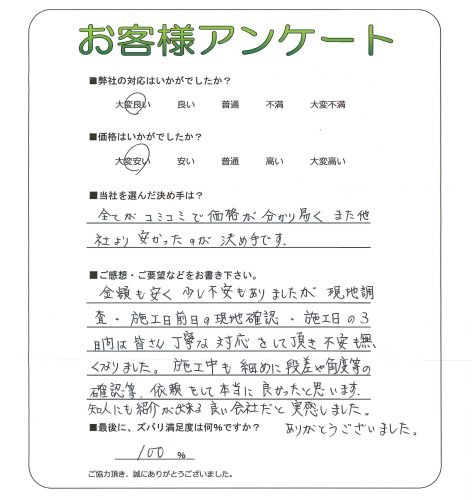 お客様アンケート
■弊社の対応はいかがでしたか？
大変良い 良い 普通 不満 大変不満
■価格はいかがでしたか？
大変安い 安い 普通 高い 大変高い
■当社を選んだ決め手は？
全てがコミコミで価格が分かり易く また他
社より安かったのが決め手です.
■ご感想・ご要望などをお書き下さい。
金額も安く少し不安もありましたが現地調
査・施工日前日の現地確認・施工日の3
日内は皆さん丁寧な対応をして頂き不安も無
くなりました。施工中も細めに段差や角度等の
確認等、依頼をして本当に良かったと思います.
知人にも紹介が出来る良い会社だと実感しました。
ありがとうございました。
■最後に、ズバリ満足度は何%ですか？
100 %
ご協力頂き、誠にありがとうございました。